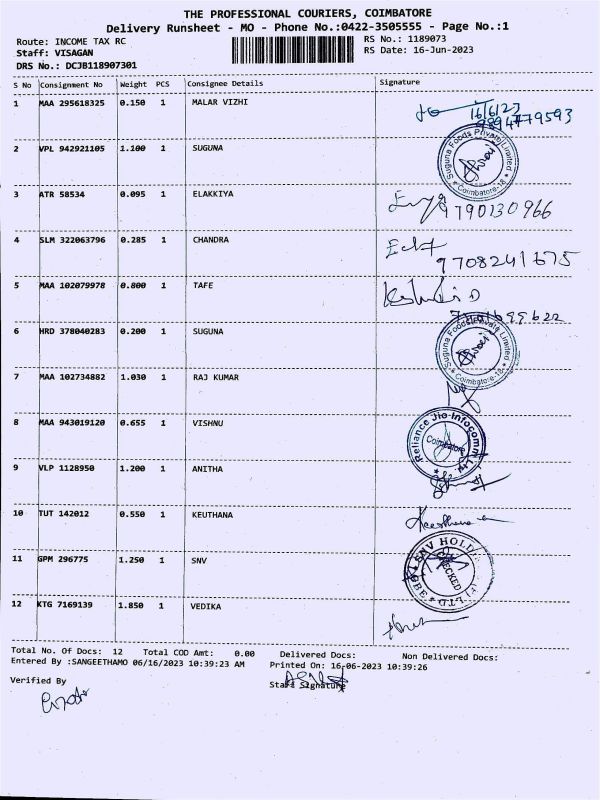 THE PROFESSIONAL COURIERS, COIMBATORE
Delivery Runsheet - MO - Phone No.:0422-3505555 - Page No.:1
Route: INCOME TAX RC RS No.: 1189073
Staff: VISAGAN RS Date: 16-Jun-2023
DRS No.: DCJB118907301
S No Consignment No Weight PCS Consignee Details Signature
1 MAA 295618325 0.150 1 MALAR VIZHI
16/6/23
9894779593
2 VPL 942921105 1.100 1 SUGUNA
Suguna Foods Private Limited
Coimbatore-18
3 ATR 58534 0.095 1 ELAKKIYA
9790130966
4 SLM 322063796 0.285 1 CHANDRA
9708241675
5 MAA 102079978 0.800 1 TAFE
6 HRD 378040283 0.200 1 SUGUNA
Suguna Foods Private Limited
Coimbatore-18
7 MAA 102734882 1.030 1 RAJ KUMAR
8 MAA 943019120 0.655 1 VISHNU
Reliance Jio Infocomm Ltd
Coimbatore
9 VLP 1128950 1.200 1 ANITHA
10 TUT 142012 0.550 1 KEUTHANA
Keerthana
11 GPM 296775 1.250 1 SNV
SNV HOLD
LTD
12 KTG 7169139 1.850 1 VEDIKA
Total No. Of Docs: 12 Total COD Amt: 0.00 Delivered Docs: Non Delivered Docs:
Entered By :SANGEETHAMO 06/16/2023 10:39:23 AM Printed On: 16-06-2023 10:39:26
Verified By Staff Signature